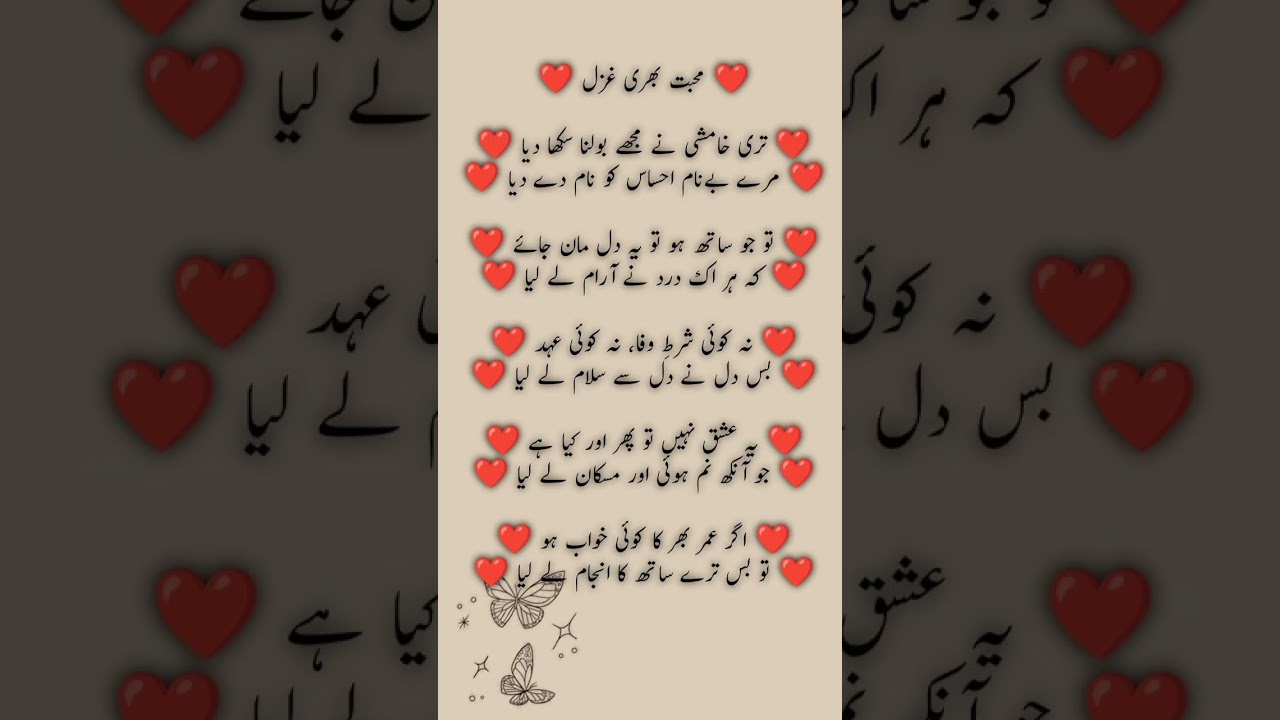 ❤️ محبت بھری غزل ❤️
❤️ تری خامشی نے مجھے بولنا سکھا دیا ❤️
❤️ مرے بےنام احساس کو نام دے دیا ❤️
❤️ تو جو ساتھ ہو تو یہ دل مان جائے ❤️
❤️ کہ ہر اک درد نے آرام لے لیا ❤️
❤️ نہ کوئی شرطِ وفا، نہ کوئی عہد ❤️
❤️ بس دل نے دل سے سلام لے لیا ❤️
❤️ یہ عشق نہیں تو پھر اور کیا ہے ❤️
❤️ جو آنکھ نم ہوئی اور مسکان لے لیا ❤️
❤️ اگر عمر بھر کا کوئی خواب ہو ❤️
❤️ تو بس ترے ساتھ کا انجام لے لیا ❤️